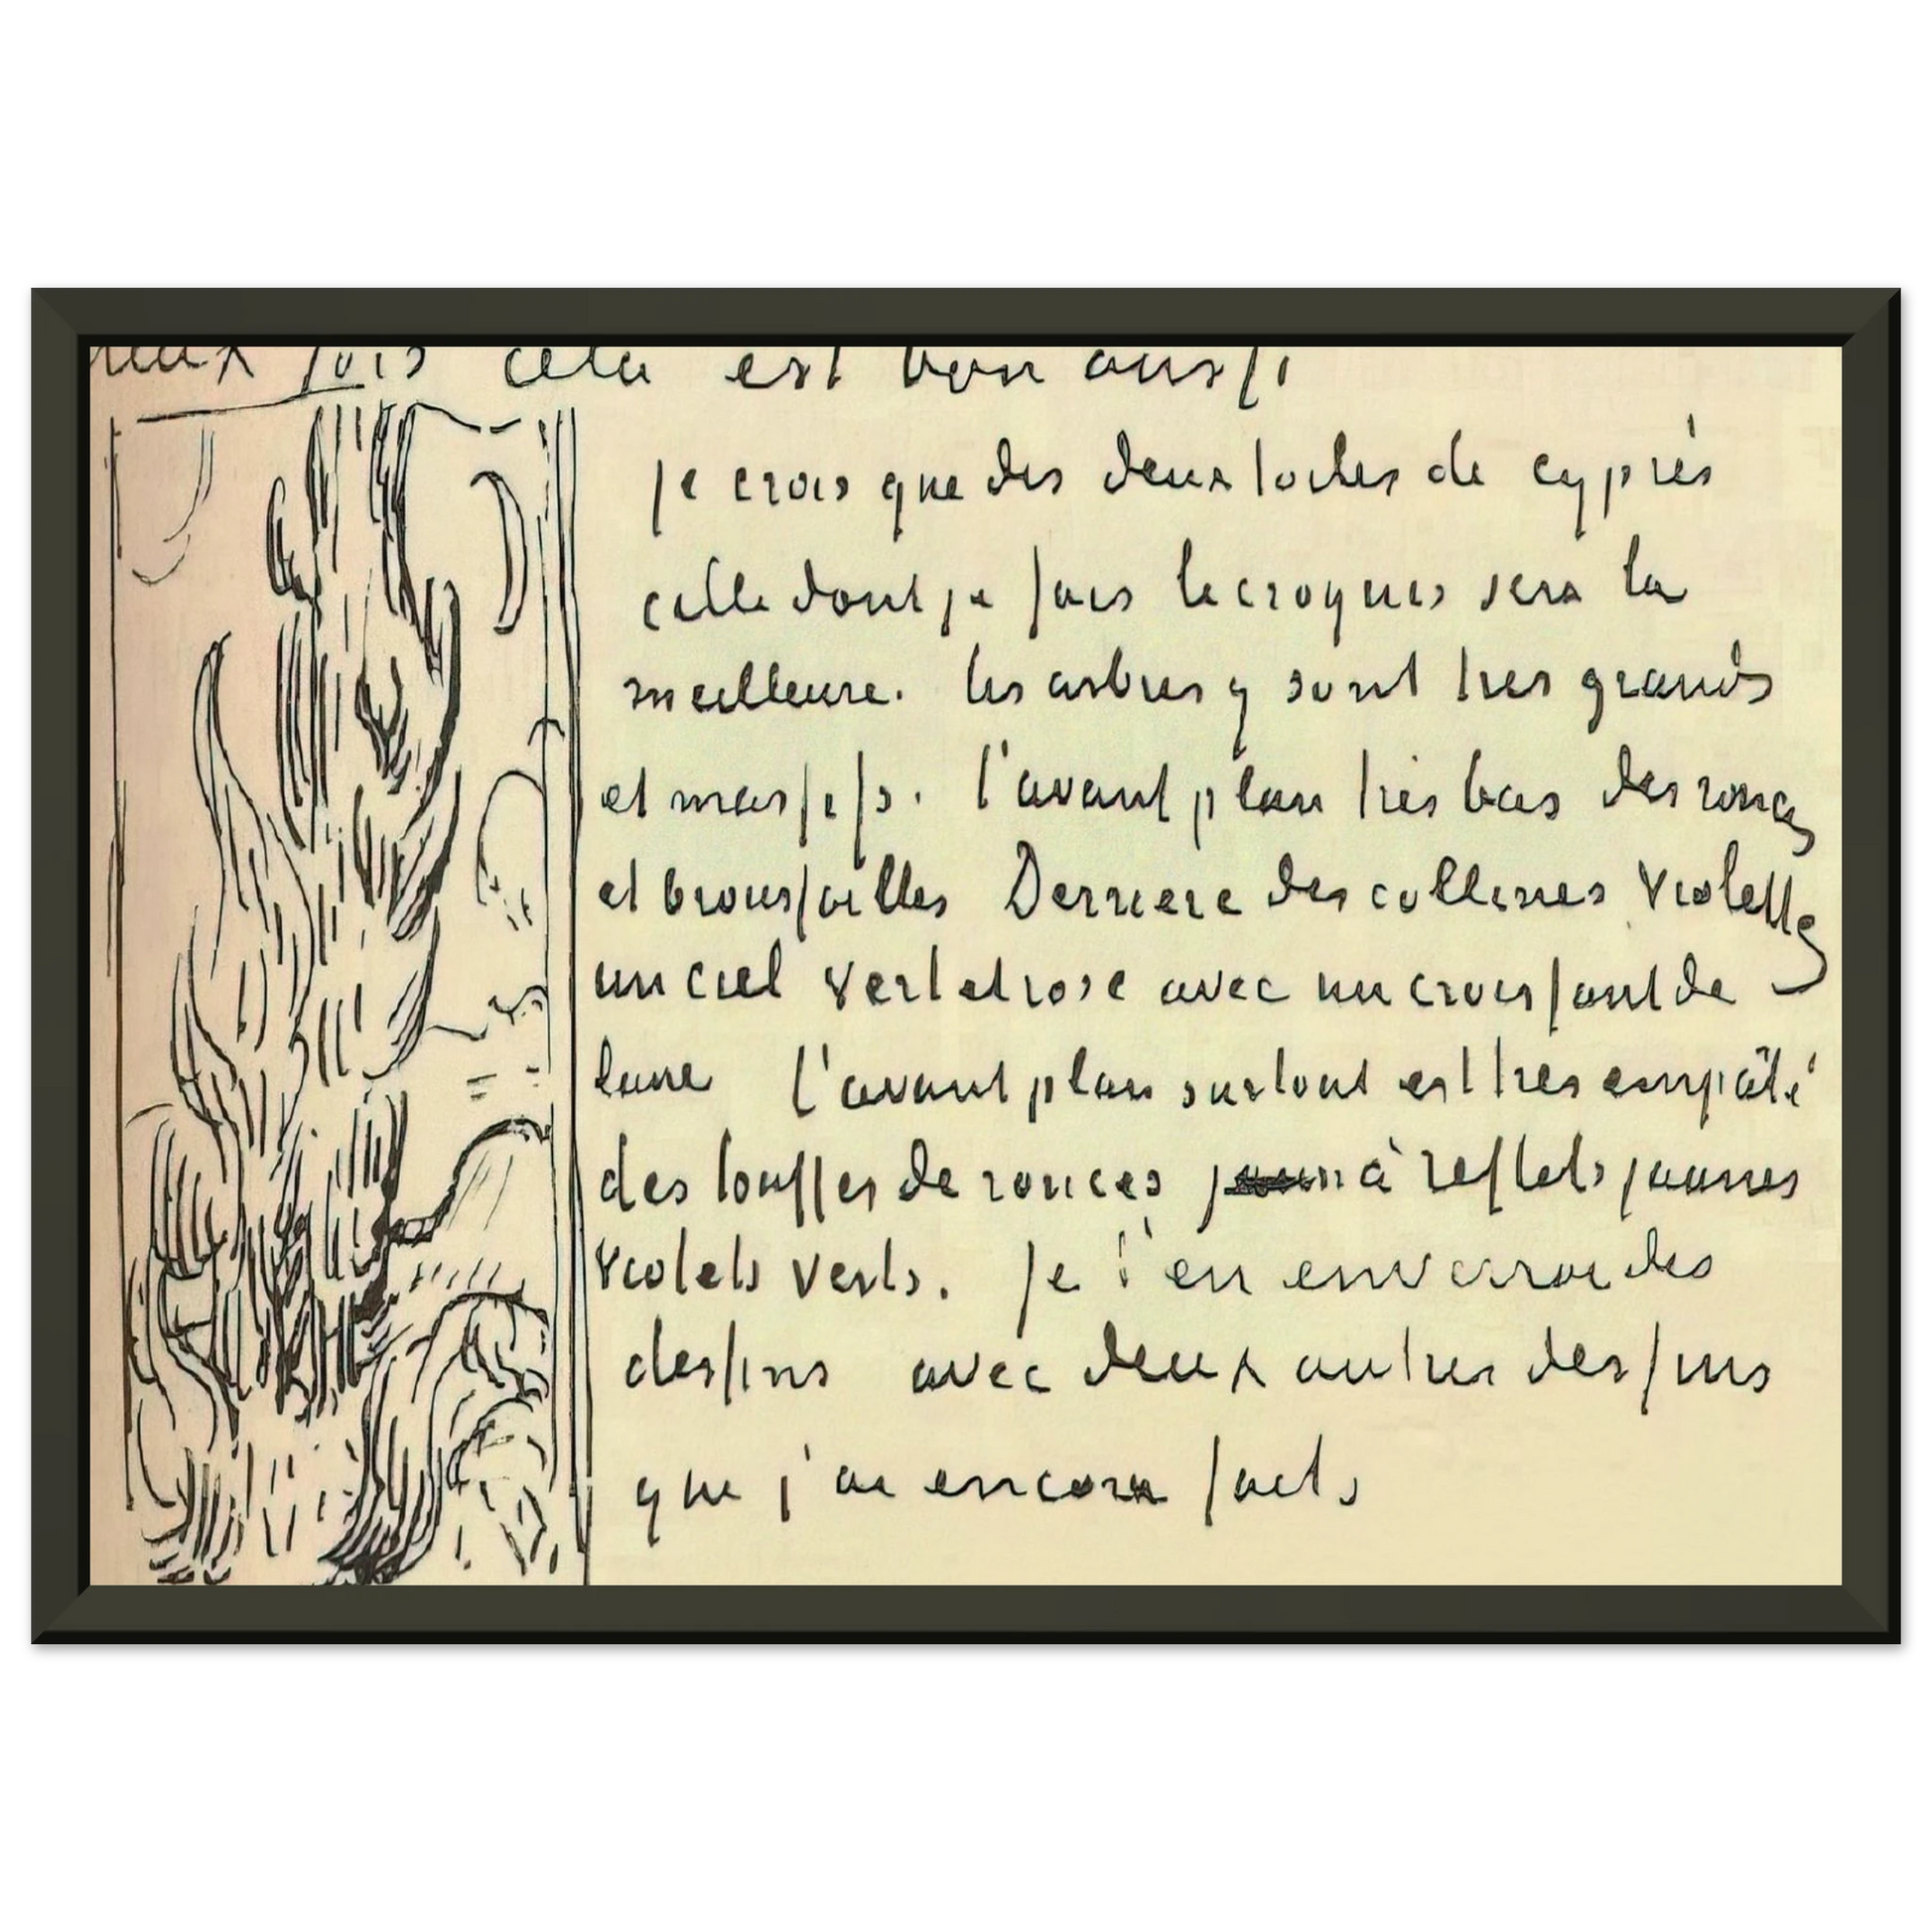 fois cela est bon aussi
je crois que des deux toiles de cyprès
celle dont je fais le croquis sera la
meilleure. les arbres y sont tres grands
et massifs. l'avant plan très bas des ronces
et broussailles Derriere des collines violettes
un ciel vert et rose avec un croissant de
lune l'avant plan surtout est tres empâté
des touffes de ronces à reflets jaunes
violets verts. je t'en enverrai des
dessins avec deux autres dessins
que j'ai encore faits